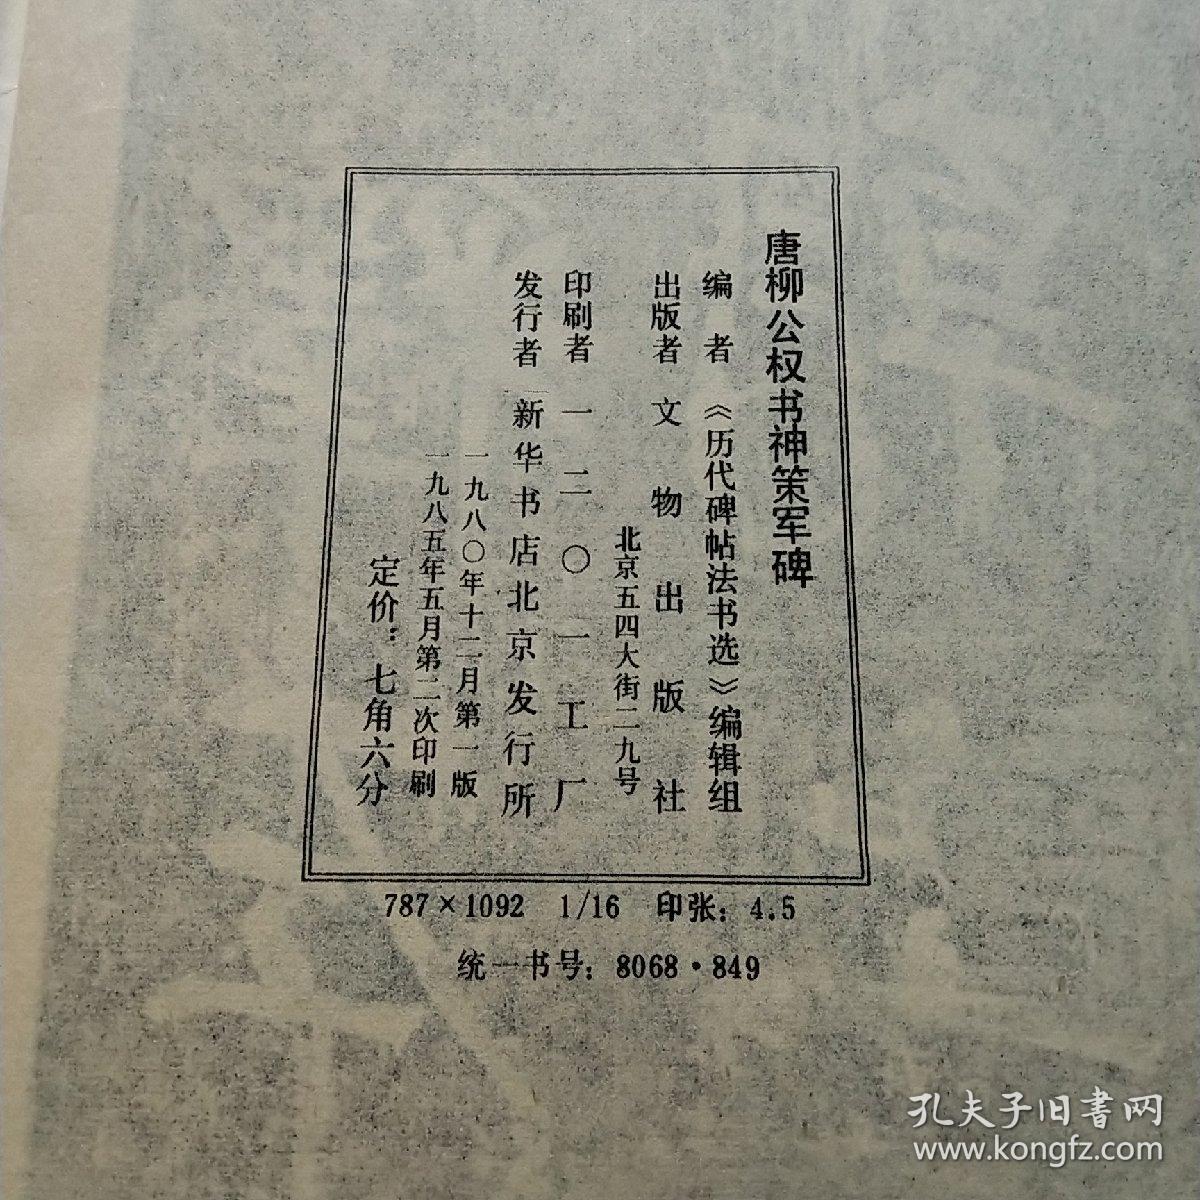 唐柳公权书神策军碑
编者 《历代碑帖法书选》编辑组
出版者 文物出版社
北京五四大街二九号
印刷者 一二〇一工厂
发行者 新华书店北京发行所
一九八〇年十二月第一版
一九八五年五月第二次印刷
定价：七角六分
787×1092 1/16 印张：4.5
统一书号：8068·849
孔夫子旧书网
www.kongfz.com